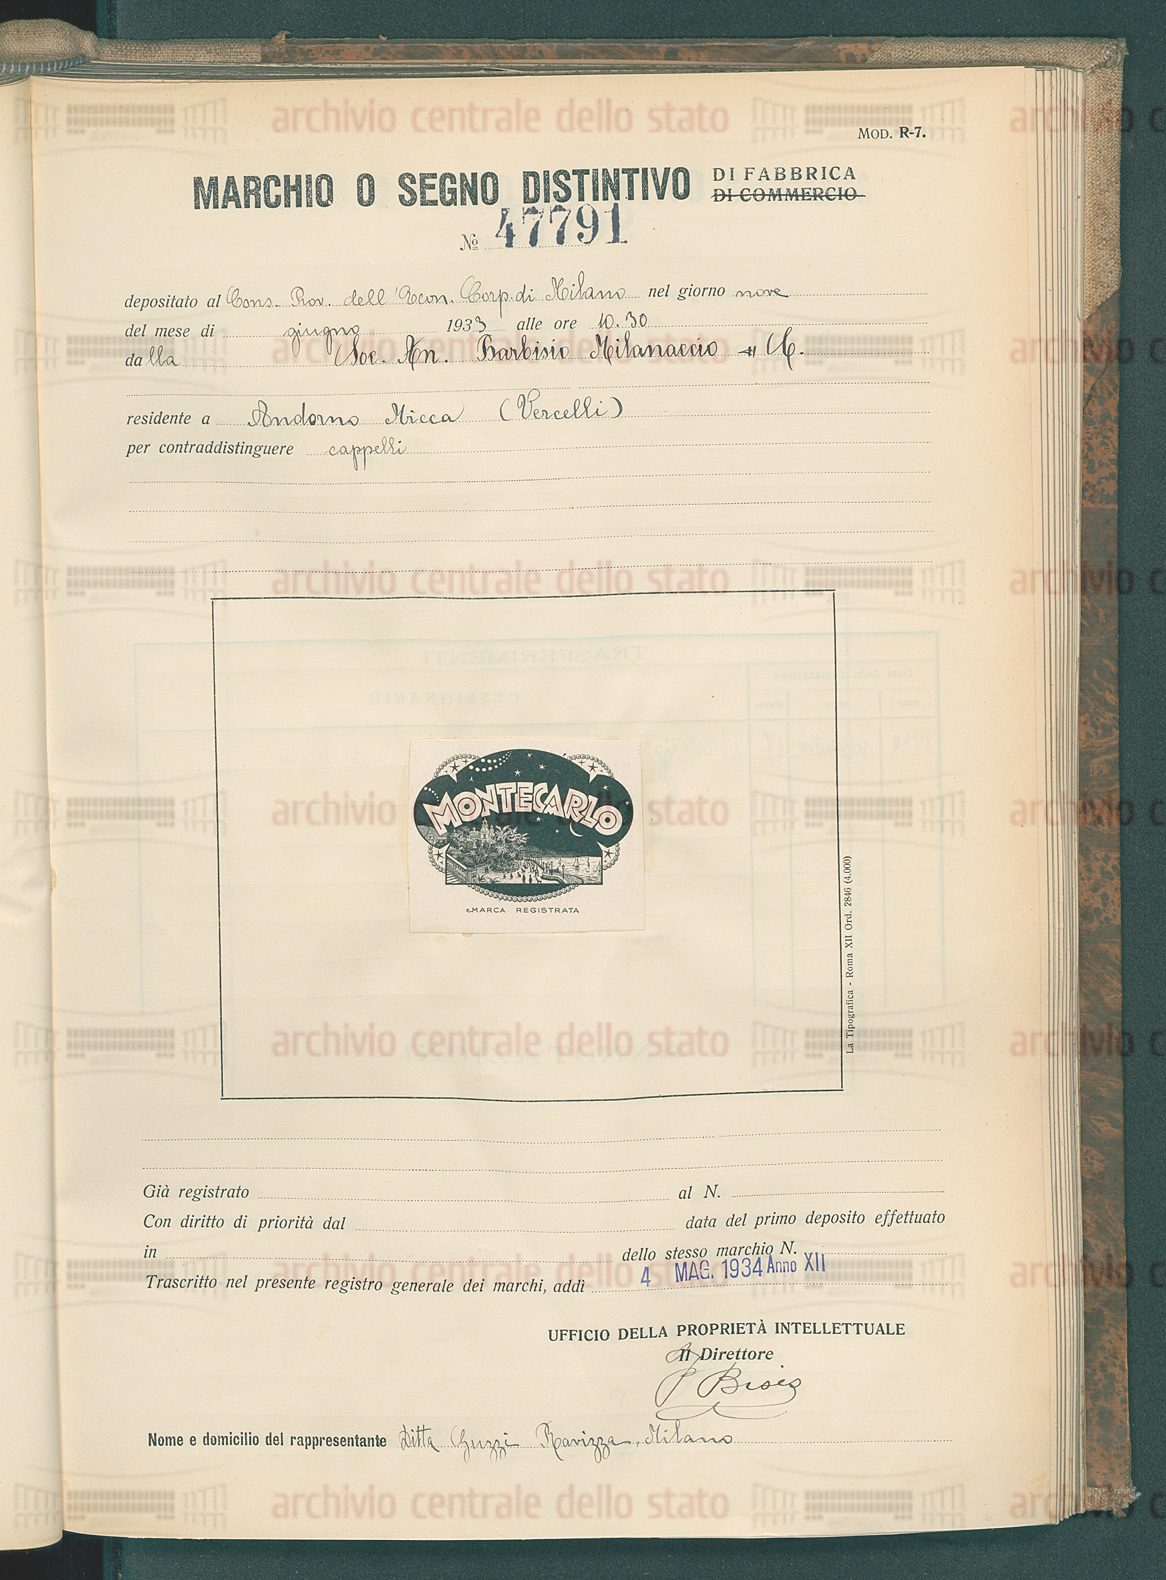 MOD. R-7.
MARCHIO O SEGNO DISTINTIVO DI FABBRICA
DI COMMERCIO
№ 47791
depositato al Cons. Prov. dell'Econ. Corp. di Milano nel giorno nove
del mese di giugno 1933 alle ore 10.30
dalla Soc. An. Barbisio Milanaccio & C.
residente a Andorno Micca (Vercelli)
per contraddistinguere cappelli
MONTECARLO
MARCA REGISTRATA
La Tipografica - Roma XII Ord. 2846 (4.000)
Già registrato al N.
Con diritto di priorità dal data del primo deposito effettuato
in dello stesso marchio N.
Trascritto nel presente registro generale dei marchi, addì 4 MAG. 1934 Anno XII
UFFICIO DELLA PROPRIETÀ INTELLETTUALE
Il Direttore
Nome e domicilio del rappresentante Ditta Guzzi Ravizza, Milano
archivio centrale dello stato